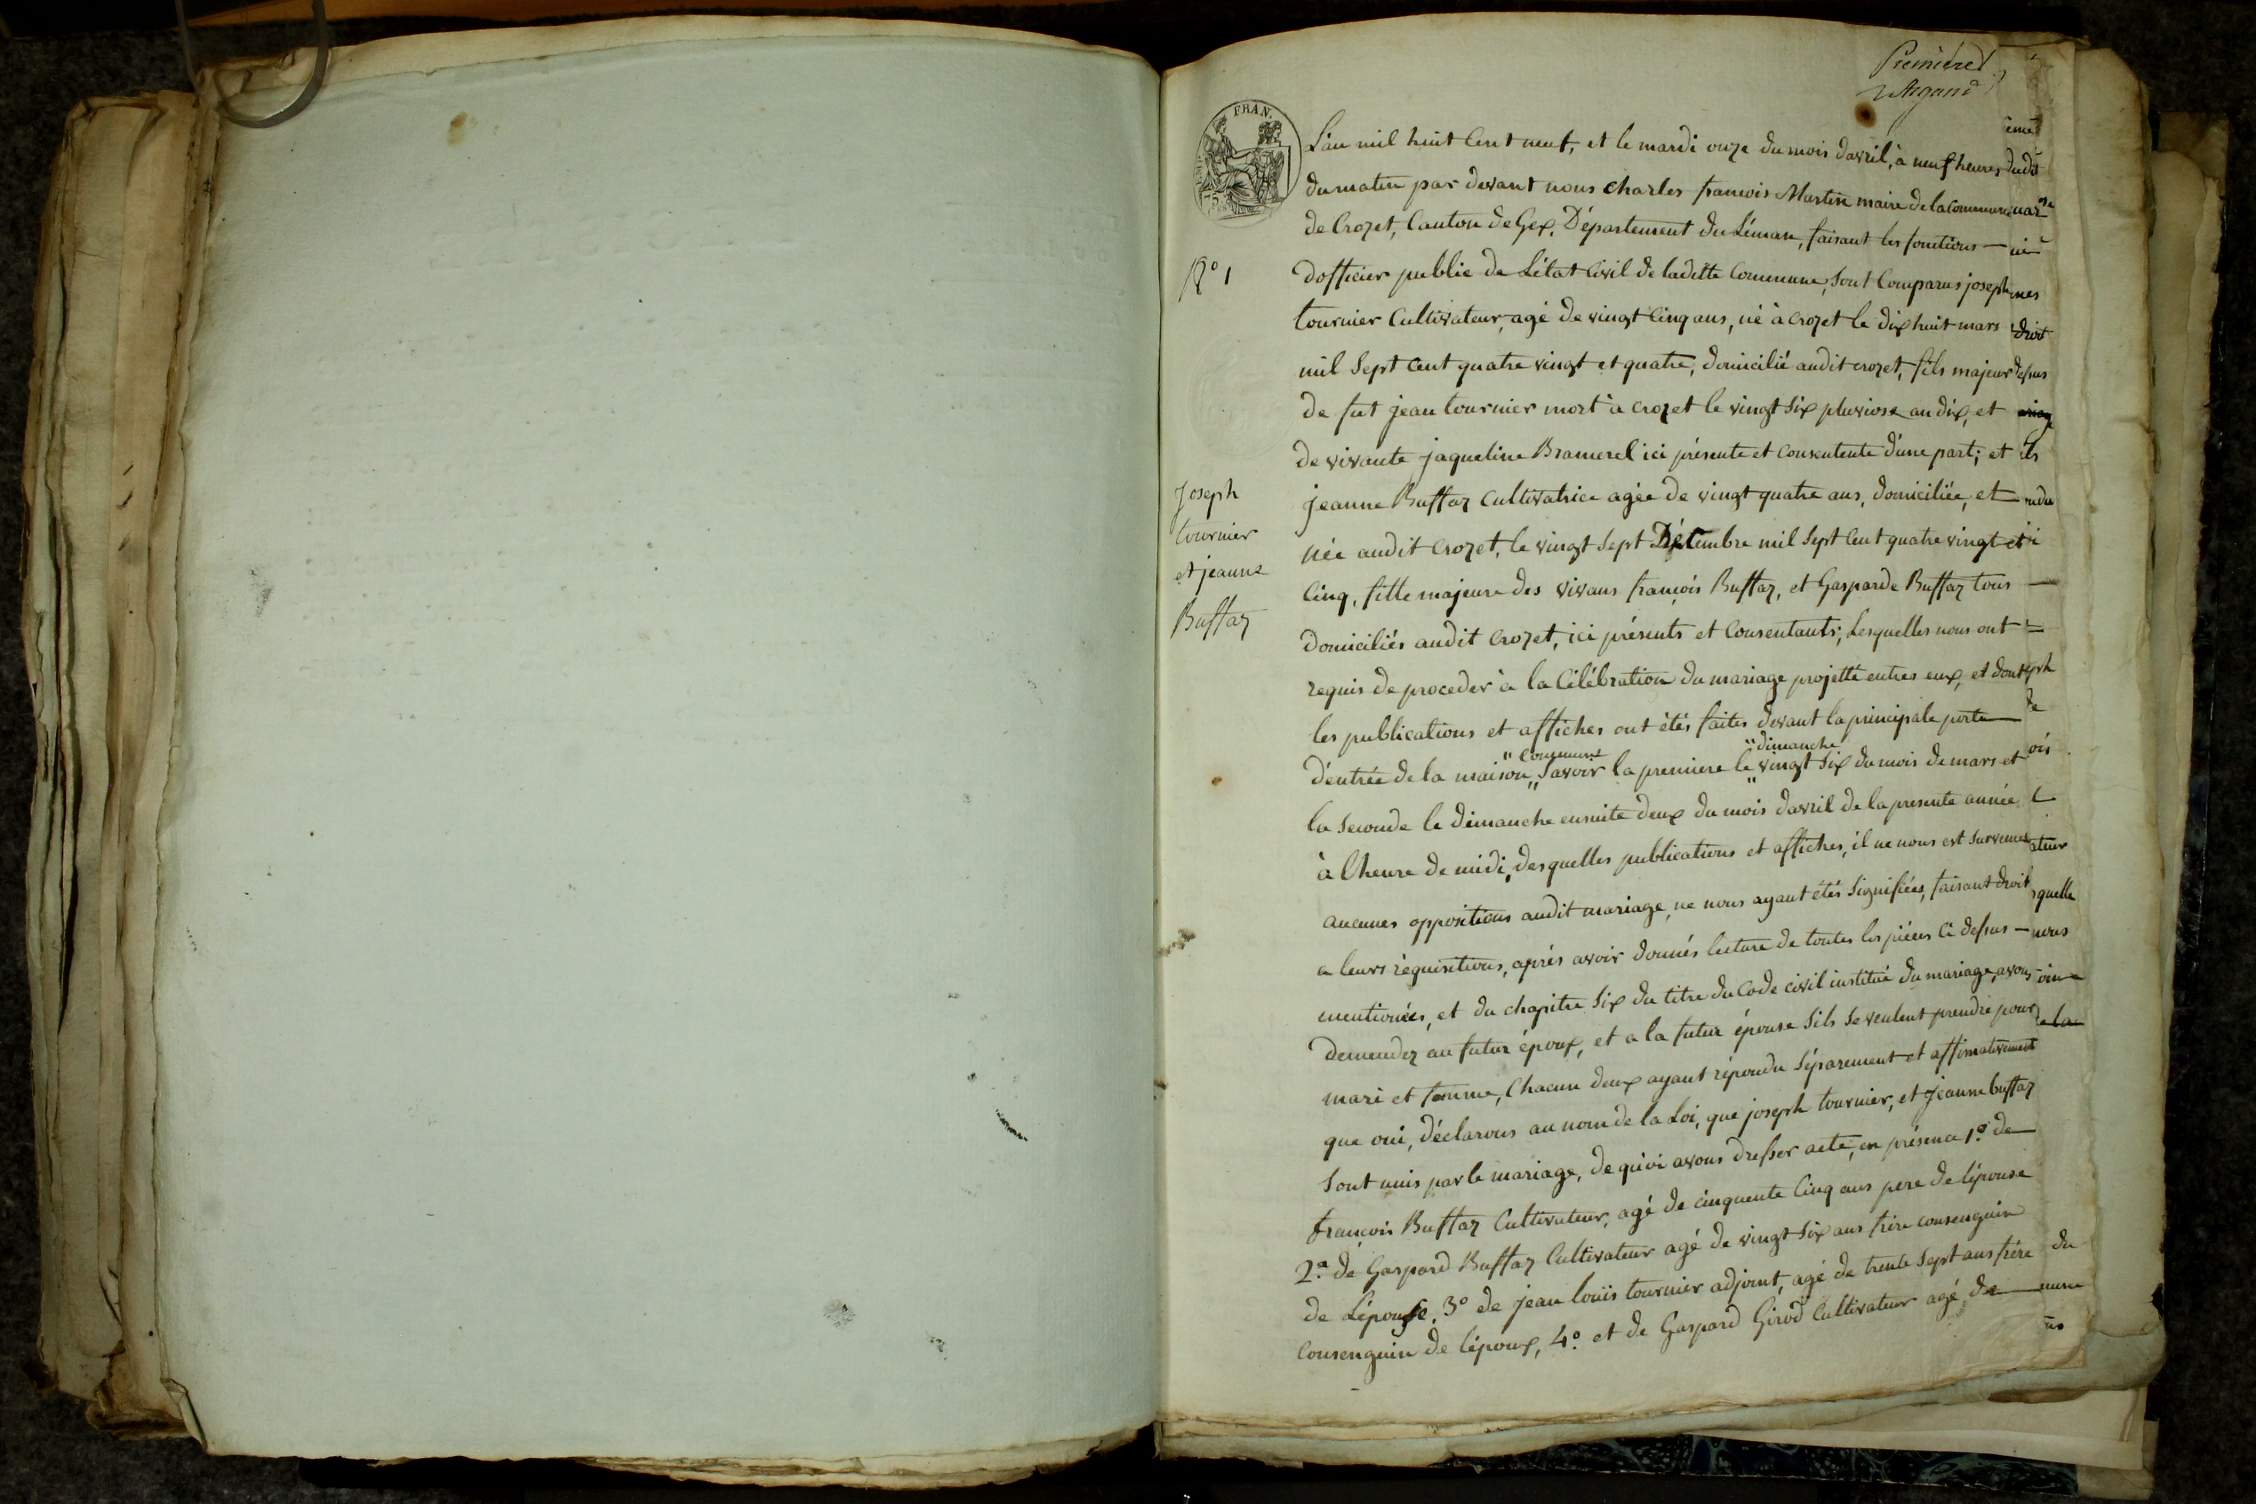 Premiere
Argand
FRAN.
L'an mil huit Cent neuf, et le mardi onze du mois davril, à neuf heures
du matin par devant nous Charles francois Martin maire de la Commune
de Crozet, Canton de Gex, Département du Léman, faisant les fonctions —
N° 1
dofficier public de L'état Civil de ladette Commune, Sont Comparus joseph
tournier Cultivateur, agé de vingt Cinq ans, né à Crozet le dix huit mars
mil Sept Cent quatre vingt et quatre, domicilié audit crozet, fils majeur
de fut jean tournier mort à crozet le vingt Six pluviose an dix, et
de vivante jaqueline Bramerel ici présente et consentente d'une part; et
Joseph
tournier
et jeanne
Buffaz
jeanne Buffaz Cultivatrice agée de vingt quatre ans, domiciliée, et
née audit Crozet, le vingt Sept Décembre mil Sept Cent quatre vingt et
Cinq, fille majeure des vivans françois Buffaz, et Gasparde Buffaz tous —
domiciliés audit Crozet, ici présents et Consentants; Lesquelles nous ont
requis de proceder à la Célébration du mariage projetté entres eux, et dont
les publications et affiches ont étés faites devant la principale porte
" Commune " dimanche
d'entrée de la maison " Savoir la premiere le " vingt Six du mois de mars et
la Seconde le dimanche ensuite deux du mois davril de la presente année
à l'heure de midi, desquelles publications et affiches, il ne nous est survenues
aucunes oppositions audit mariage, ne nous ayant étés Signifiées, faisant droit
a leurs réquisitions, aprés avoir donnés lecture de toutes les piéces Ci dessus —
mentionées, et du chapitre Six du titre du Code civil institué du mariage, avons
demendez au futur époux, et a la futur épouse Sils Se veulent prendre pour
mari et femme, Chacun deux ayant répondu Séparement et affimativement
que oui, déclarons au nom de la Loi, que joseph tournier, et Jeanne buffaz
Sont unis par le mariage, de quoi avons dresser acte, en présence 1° de
françois Buffaz Cultivateur, agé de cinquente Cinq ans pere de l'épouse
2.° de Gaspard Buffaz Cultivateur agé de vingt Six ans frére consenguin
de L'épouse. 3° de jean Louis tournier adjoint, agé de trente Sept ans frére
Consenguin de l'époux, 4.° et de Gaspard Girod Cultivateur agé de